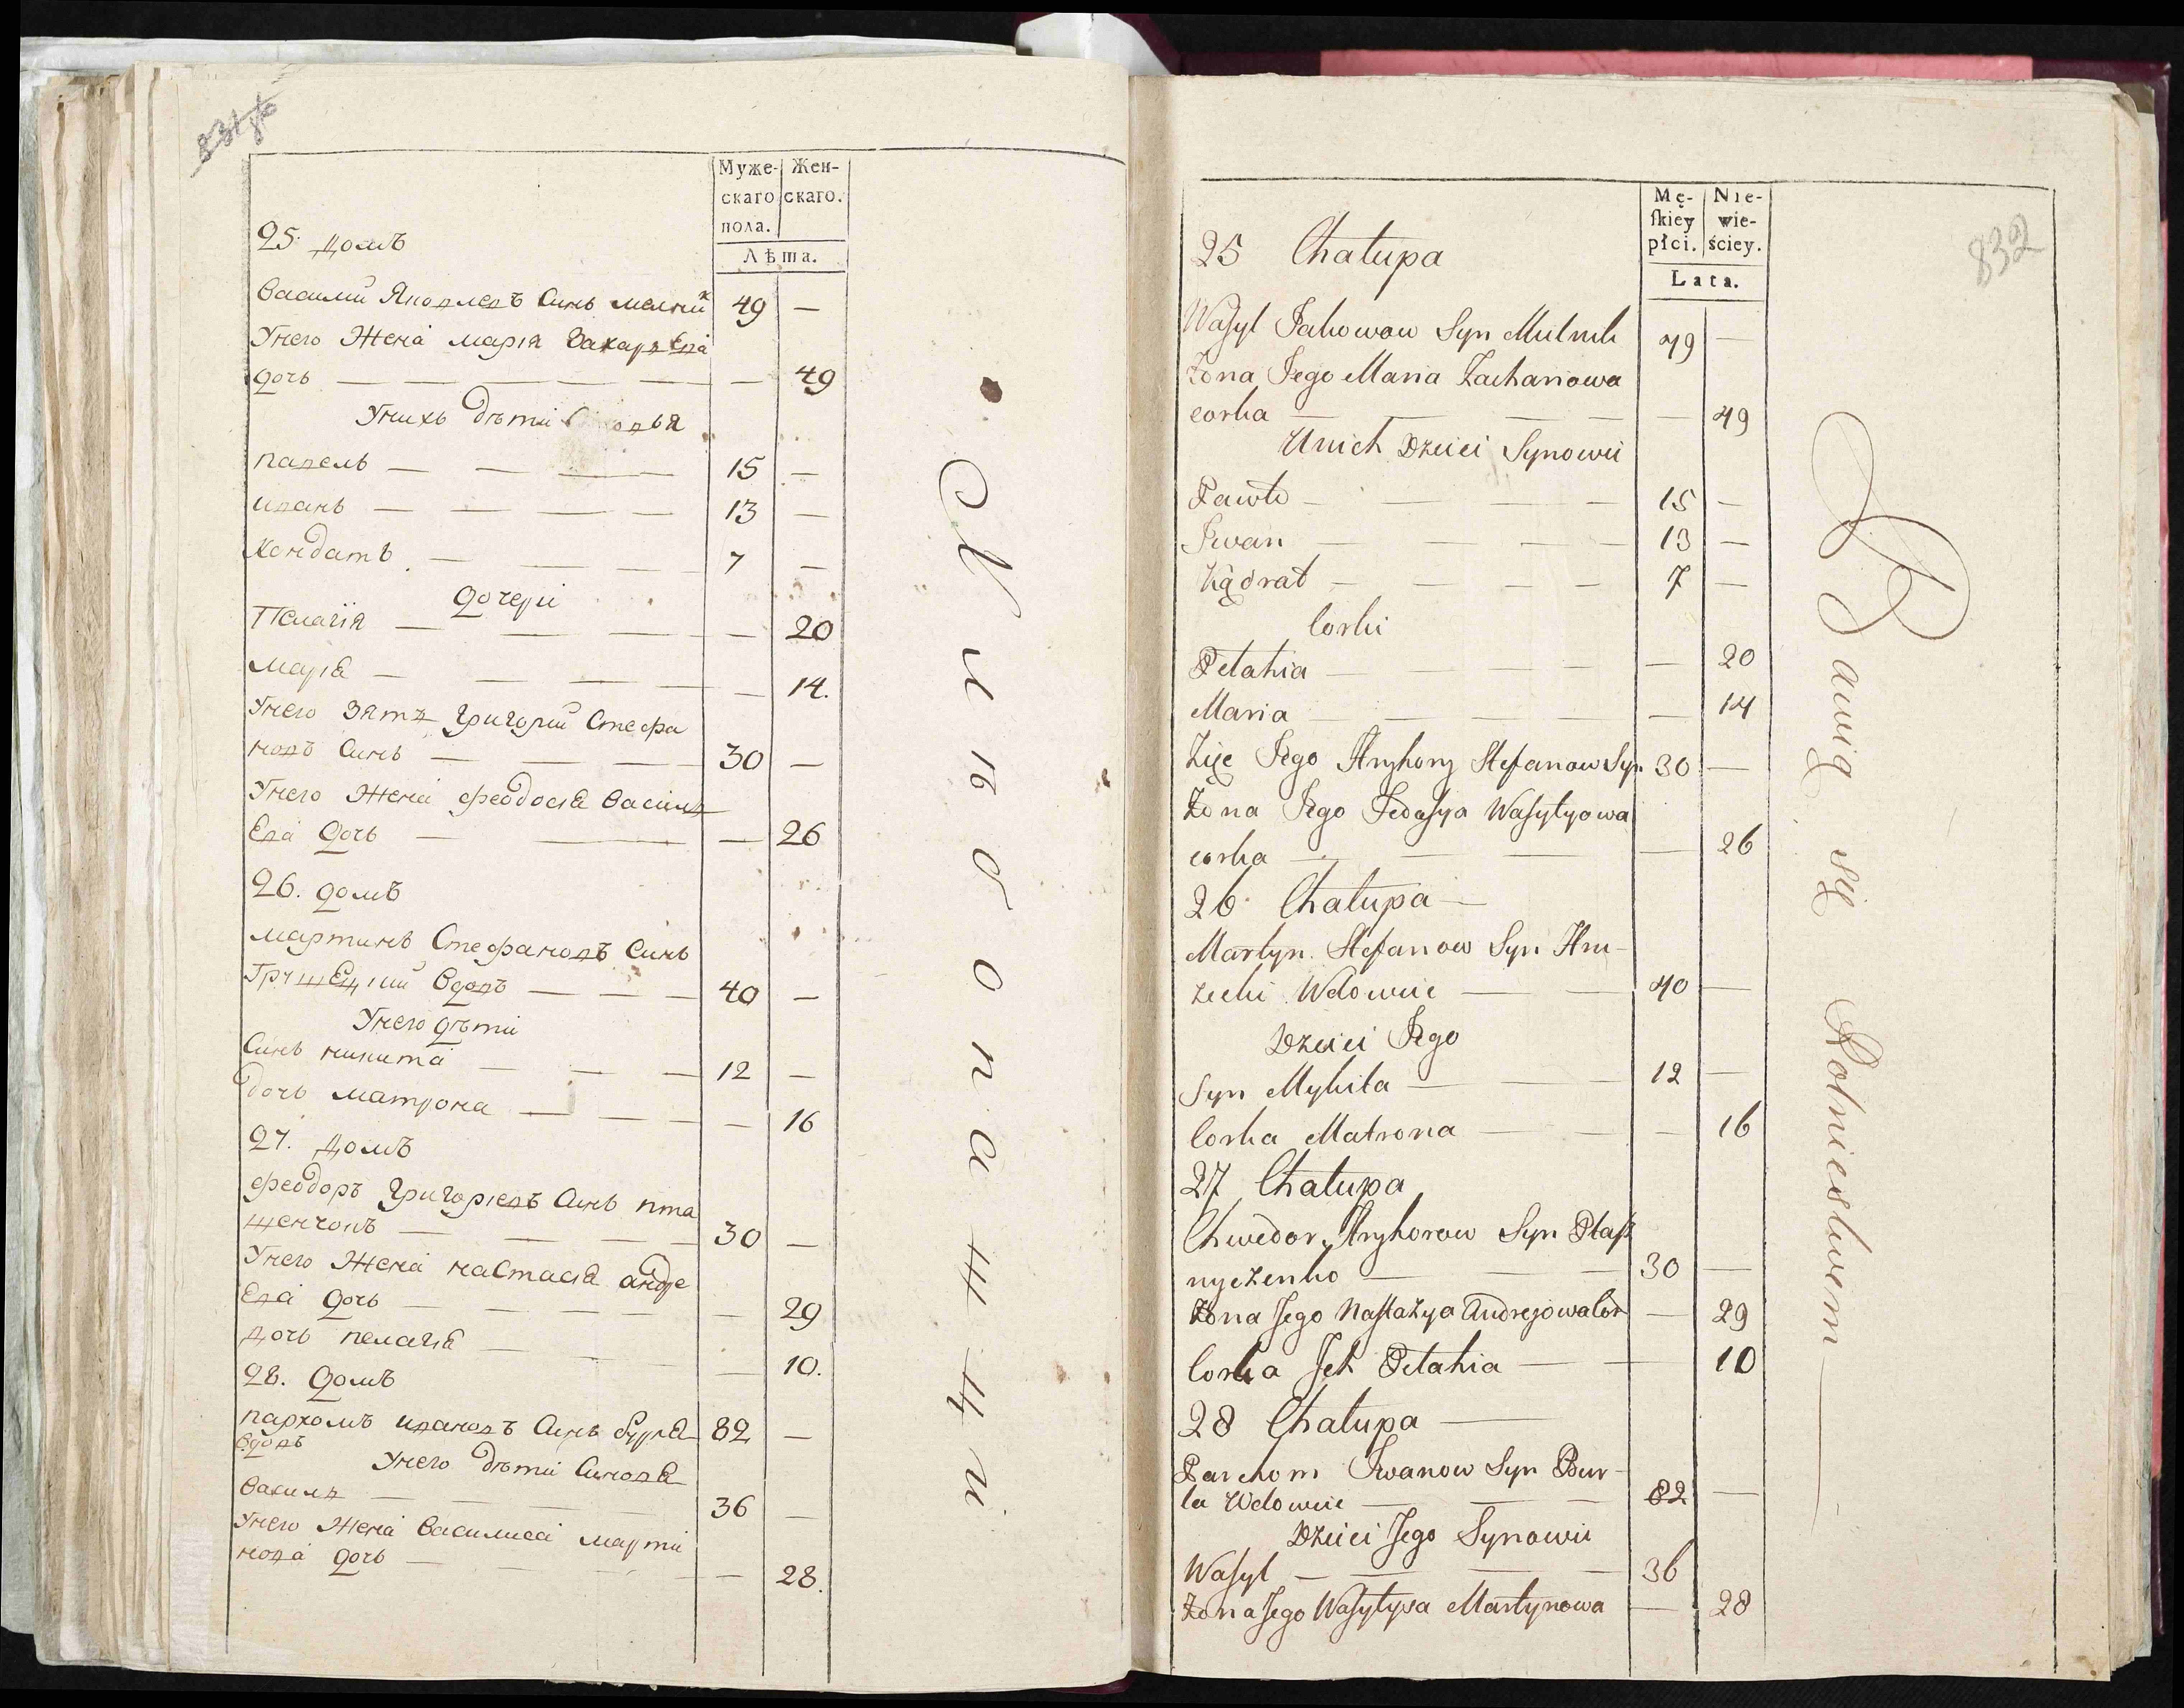 831
Муже- Жен-
скаго скаго.
пола.
Лѣта.
25. домъ
Василий Яковлевъ Синъ мелник 49 —
Унего Жена мария Захарьева
дочь — — — — — 49
Унихъ дѣти Синовья
павелъ — — — 15 —
иванъ — — — — 13 —
Кондатъ — — — 7 —
дочери
Пелагія — — — — 20
маріа — — — — 14.
Унего Зять Григорий Стефа
новъ Синъ — — — 30 —
Унего Жена феодосіа Василь
Ева дочь — — — 26
26. домъ
мартинъ Стефановъ Синъ
Грущецкий Вдовъ — — — 40 —
Унего дѣти
Синъ никита — — — 12 —
дочь матрона — — — — 16
27. домъ
феодоръ Григориевъ Синъ пта
шенчокъ — — — — 30 —
Унего Жена настасіа андре
Ева дочь — — — — — 29
дочь пелагіа — — — 10.
28. домъ
пархомъ ивановъ Синъ Бурла 82 —
Вдовъ
Унего дѣти Синова
Василь — — — 36 —
Унего Жена Василиса марти
нова дочь — — — — 28.
Хлѣбопашци
832
Mę- Nie-
ſkiey wie-
płci. ściey.
Lata.
25 Chałupa
Wasyl Jakowow Syn Mielnik 49 —
Żona Jego Maria Zachariowa
corka — — — — — 49
Unich Dzieci Synowie
Pawło — — — — 15 —
Iwan — — — — 13 —
Kądrat — — — — 7 —
Corki
Pelahia — — — — — 20
Maria — — — — 14
Zięc Jego Hryhory Stefanow Syn 30 —
Żona Jego Fedosya Wasylyowa
corka — — — — 26
26 Chałupa —
Martyn Stefanow Syn Hru-
zecki Wdowiec — — 40 —
Dzieci Jego
Syn Mykita — — — 12 —
Corka Matrona — — — 16
27 Chałupa
Chwedor Hryhorow Syn Ptasz
nyczenko — — — 30 —
Żona Jego Nastazya Andrejowa Cor — 29
Corka Jch Pelahia — — 10
28 Chałupa —
Parchom Iwanow Syn Bur-
la Wdowiec — — — 82 —
Dzieci Jego Synowie
Wasyl — — — — 36
Żona Jego Wasylysa Martynowa — 28
Bawią się Rolnictwem —